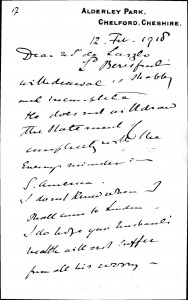 17
ALDERLEY PARK,
CHELFORD, CHESHIRE.
12 Feb. 1918
Dear de Laszlo
Ld Beresford's
withdrawal is shabby
and incomplete
He does not withdraw
the statement of
complicity with the
Enemy minister in
S. America.
I do not know when I
shall come to London
I do hope your husband's
health will not suffer
from all his worry –